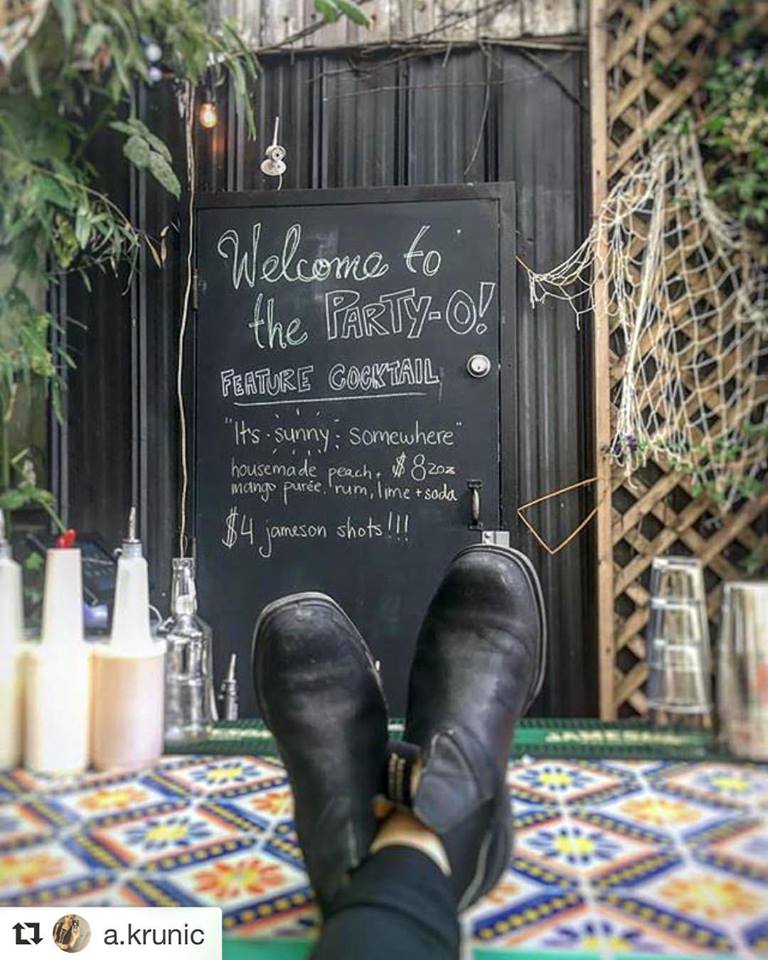 Welcome to
the PARTY-O!
FEATURE COCKTAIL
"It's sunny somewhere"
housemade peach, $8 2oz
mango purée, rum, lime + soda
$4 jameson shots!!!
a.krunic